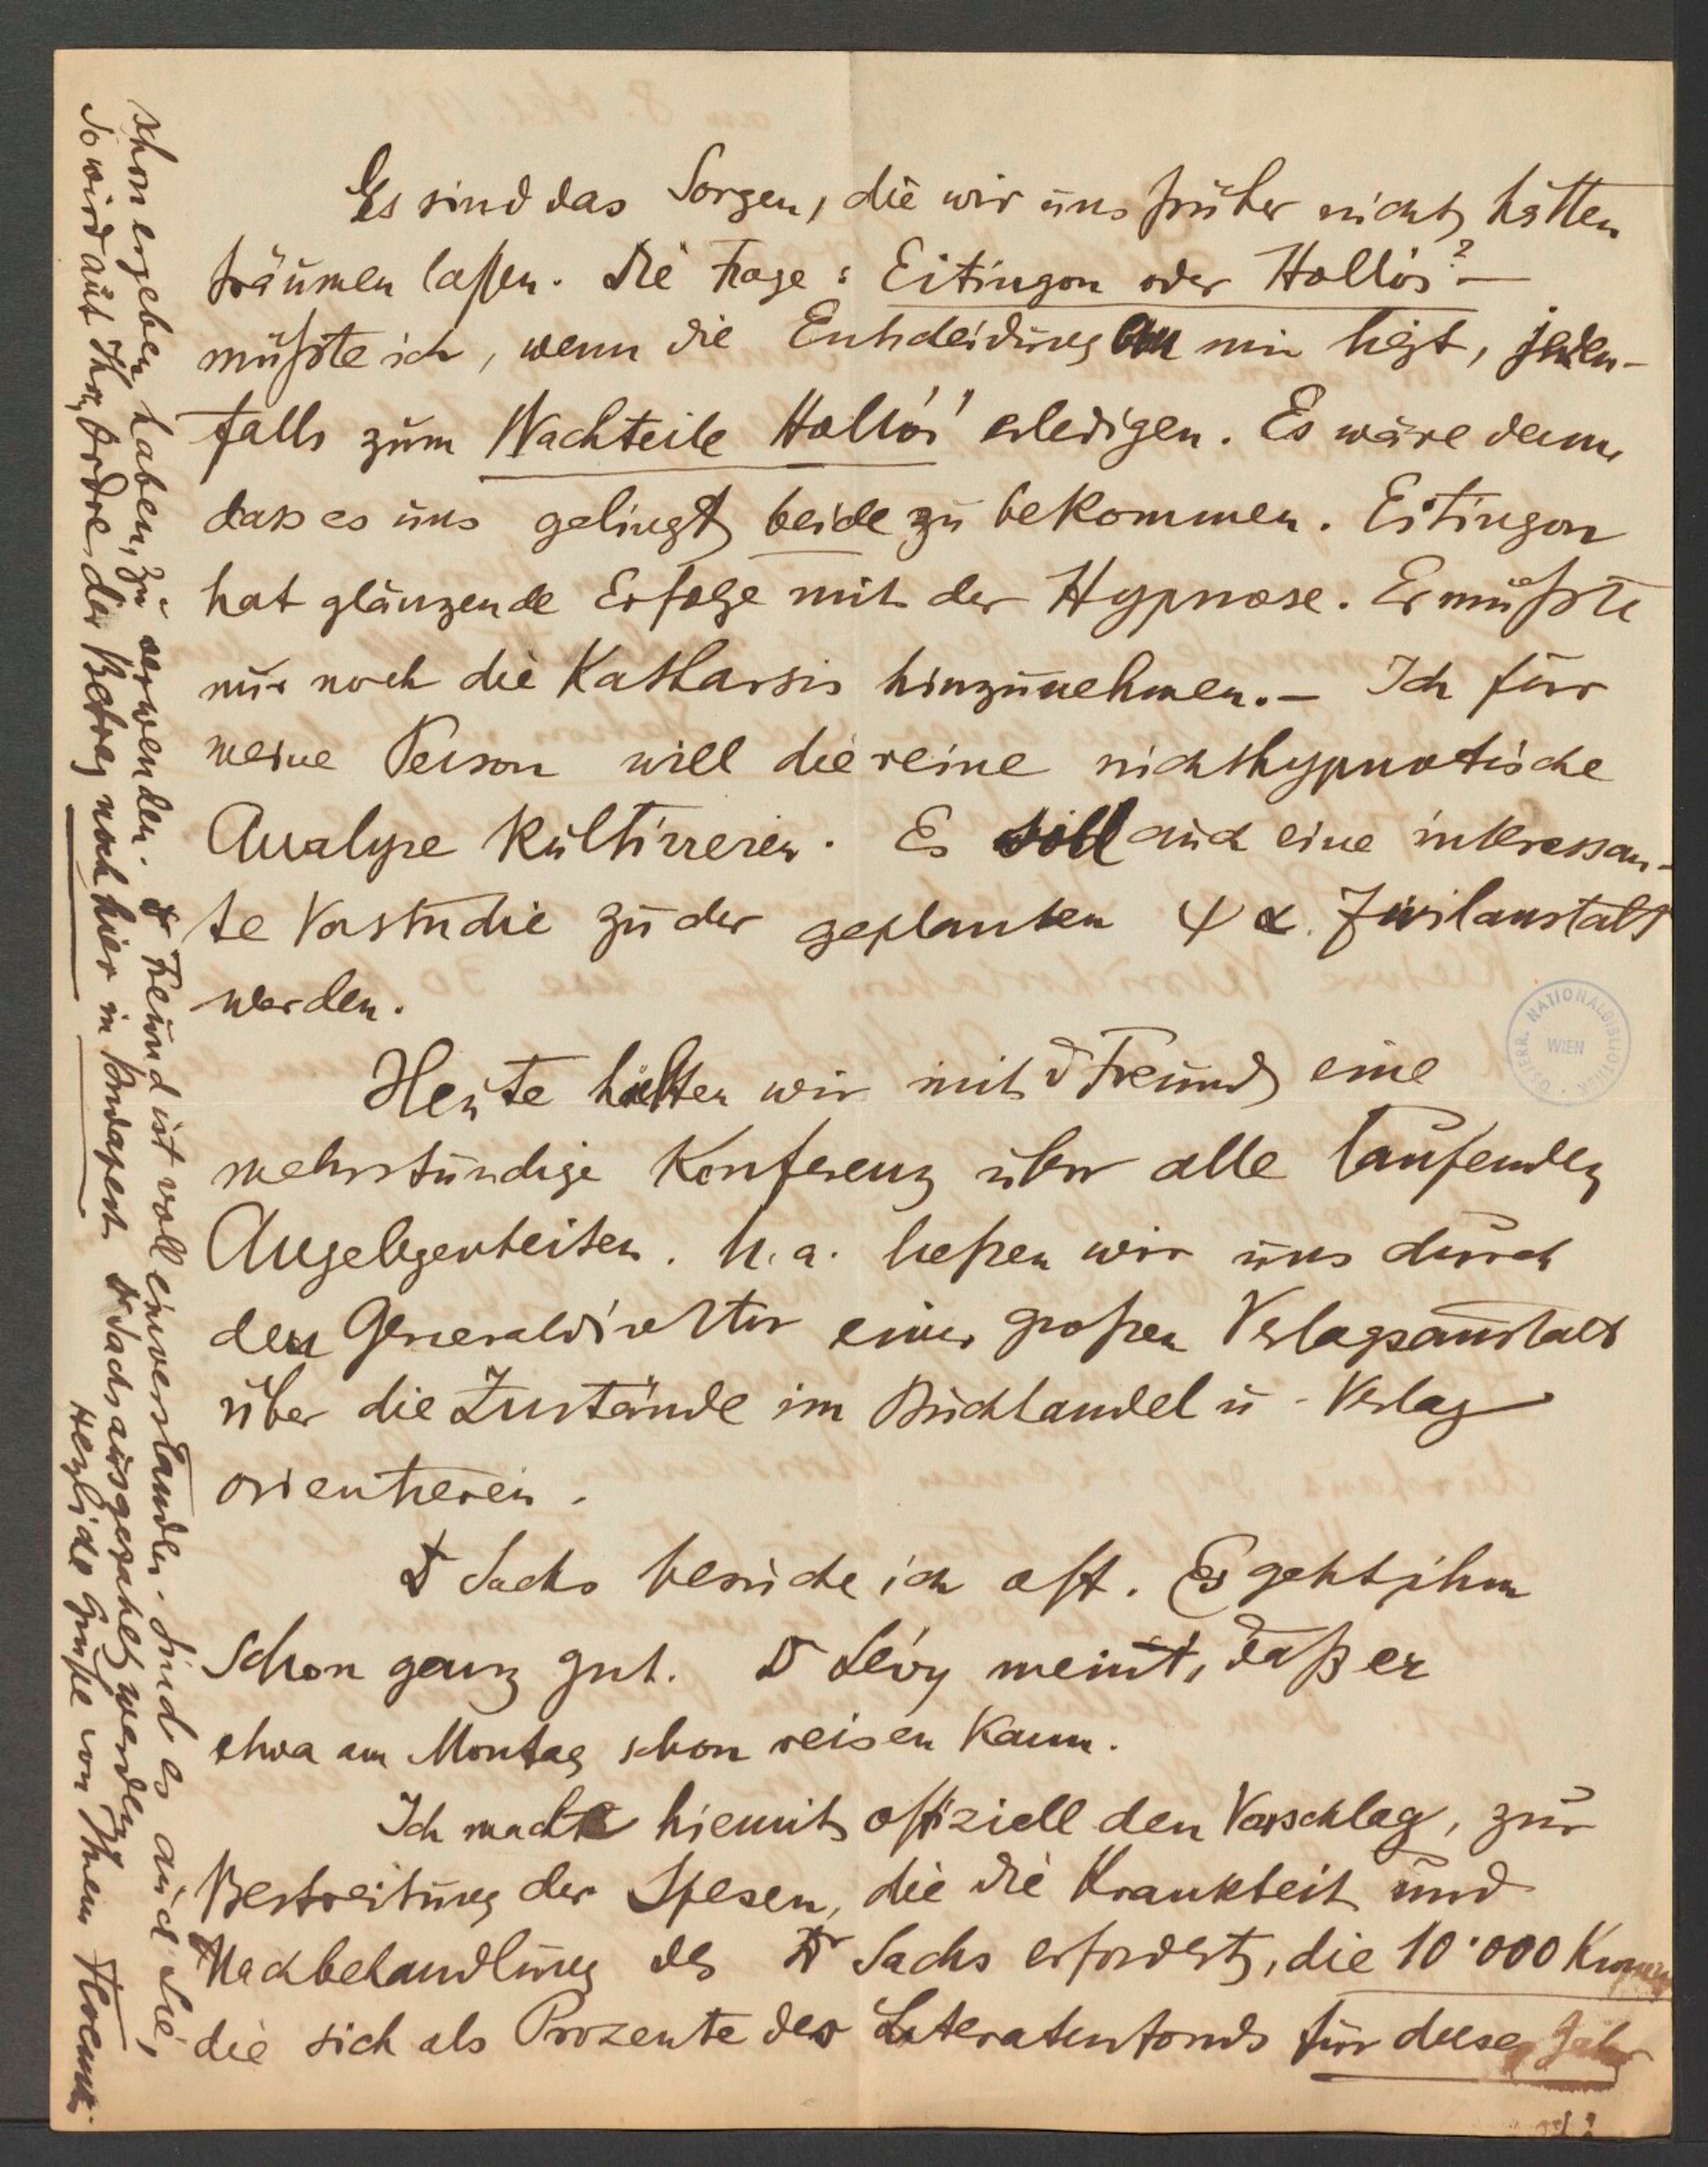 Es sind das Sorgen, die wir uns früher nicht hätten
träumen laßen. Die Frage: Eitingon oder Hollós? —
müßte ich, wenn die Entscheidung an mir liegt, jeden-
falls zum Nachteile Hollós' erledigen. Es wäre denn,
dass es uns gelingt beide zu bekommen. Eitingon
hat glänzende Erfolge mit der Hypnose. Er müßte
nur noch die Katharsis hinzunehmen. — Ich für
meine Person will die reine nichthypnotische
Analyse kultivieren. Es soll auch eine interessan-
te Vorstudie zu der geplanten ψα. Zivilanstalt
werden.
Heute hielten wir mit v Freund eine
mehrstündige Konferenz über alle laufenden
Angelegenheiten. U. a. ließen wir uns durch
den Generaldirektor einer großen Verlagsanstalt
über die Zustände im Buchhandel u - Verlag
orientieren.
Dr Sachs besuche ich oft. Es geht ihm
schon ganz gut. Dr Lévy meint, daß er
etwa am Montag schon reisen kann.
Ich mache hiemit offiziell den Vorschlag, zur
Bestreitung der Spesen, die die Krankheit und
Nachbehandlung des Dr Sachs erfordert, die 10·000 Kronen
die sich als Prozente des Literatenfonds für dieses Jahr
schon ergeben haben, zu verwenden. Dr Freund ist voll einverstanden. Sind es auch Sie,
so wird auf Ihre Ordre der Betrag noch hier in Budapest Dr Sachs ausgezahlt werden
Herzliche Grüße von Ihrem Ferenczi
ÖSTERR. NATIONALBIBLIOTHEK
WIEN